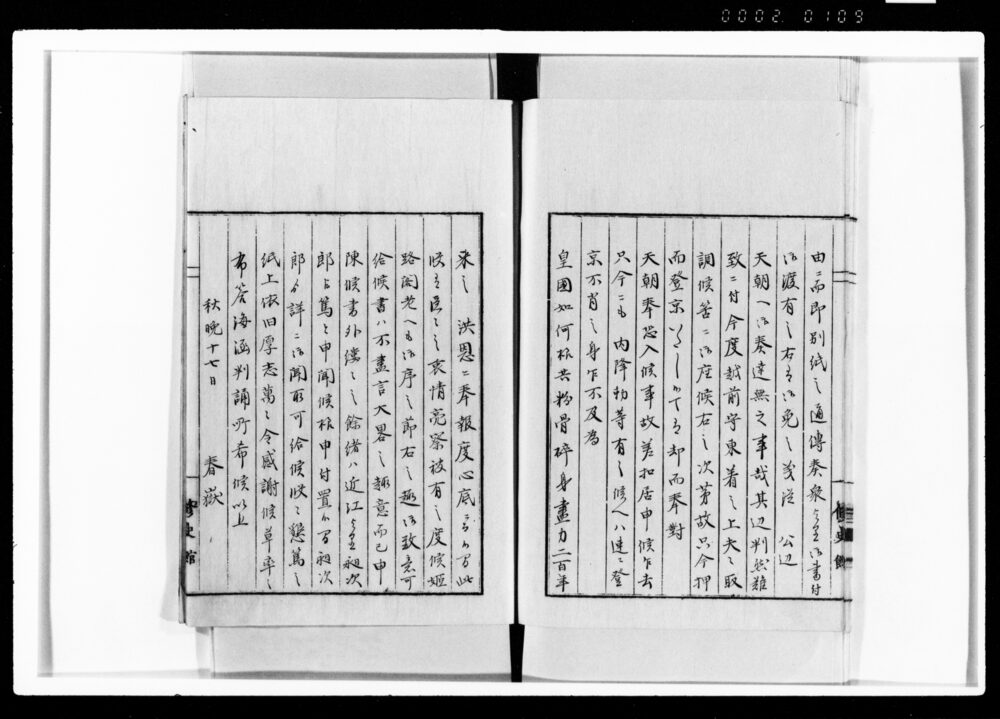 0002.0109
由ニ而即別紙之通傳奏衆ゟ御書付
御渡有之右者御免之義従 公辺
天朝へ御奏達無之事哉其辺判然難
致ニ付今度越前守東着之上夫々取
調候筈ニ御座候右之次第故只今押
而登京いたし候而者却而奉對
天朝奉恐入候事故差扣居申候乍去
只今ニも 内降勅等有之候ハヽ速ニ登
京不肖之身乍不及為
皇国如何様共粉骨砕身盡力二百年
来之 洪恩ニ奉報度心底ニ御座候此
段者区々之衷情亮察被有之度候姫
路閣老へも御序之節右之趣御致意可
給候書ハ不盡言大畧之趣意而已申
陳候書外縷々之餘緒ハ近江ゟ昶次
郎ゟ篤と申聞候様申付置候間昶次
郎ゟ詳ニ御聞取可給候段々懇篤之
紙上依旧厚志萬々令感謝候草率之
布答海涵判誦所希候以上
秋晩十七日 春嶽
修史館
修史館